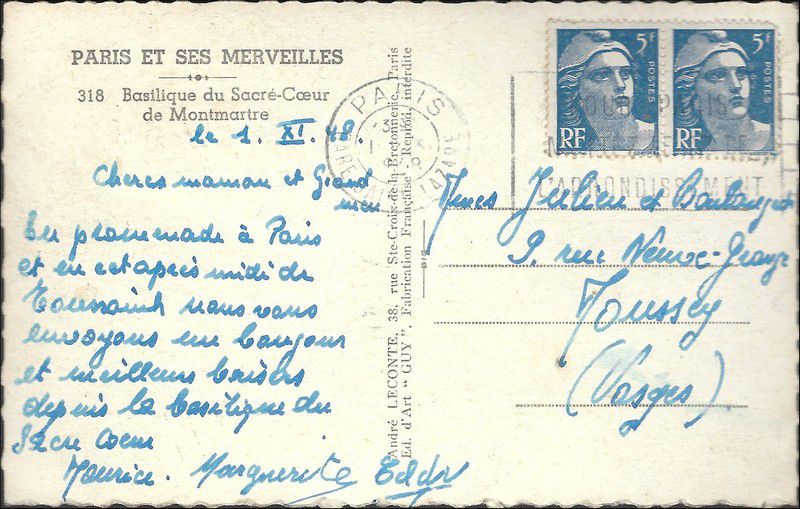 PARIS ET SES MERVEILLES
318 Basilique du Sacré-Cœur
de Montmartre
le 1. XI. 48.
Cheres maman et Grand
En promenade à Paris
et en cet après midi de
Toussaint nous vous
envoyons un bonjour
et meilleurs baisers
depuis la basilique du
Sacre Coeur
Maurice. Marguerite Eddy
André LECONTE, 38, rue Ste-Croix-de-la-Bretonnerie, Paris
Ed. d'Art "GUY". Fabrication Française - Reprod. interdite
PARIS
GARE LAZARE
5F
POSTES
RF
5F
POSTES
RF
POUR
CORRESPONDANCE
ARRONDISSEMENT
Mmes Julien et
9. rue
Moussey
(Vosges)